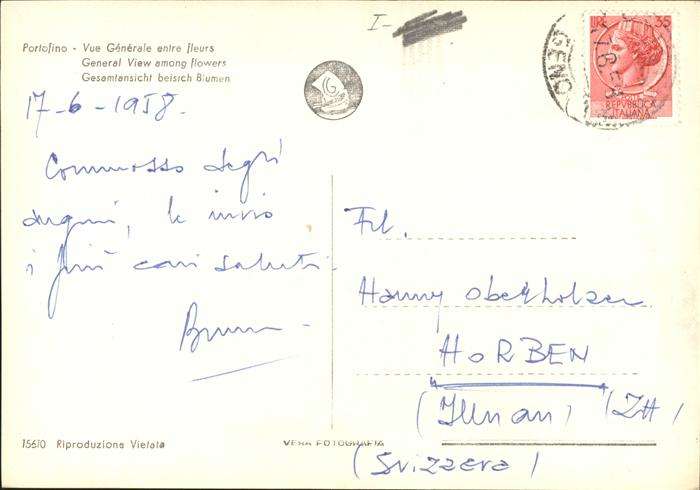 I-
Portofino - Vue Générale entre fleurs
General View among flowers
Gesamtansicht beisrch Blumen
LIRE 35
REPVBBLICA
ITALIANA
GENO
17-6-1958.
Commosso degli
auguri, le invio
i più cari saluti.
Bruno
Frl.
Hanny Oberholzer
HORBEN
(Illnau) (ZH)
(Svizzera)
15610 Riproduzione Vietata
VERA FOTOGRAFIA